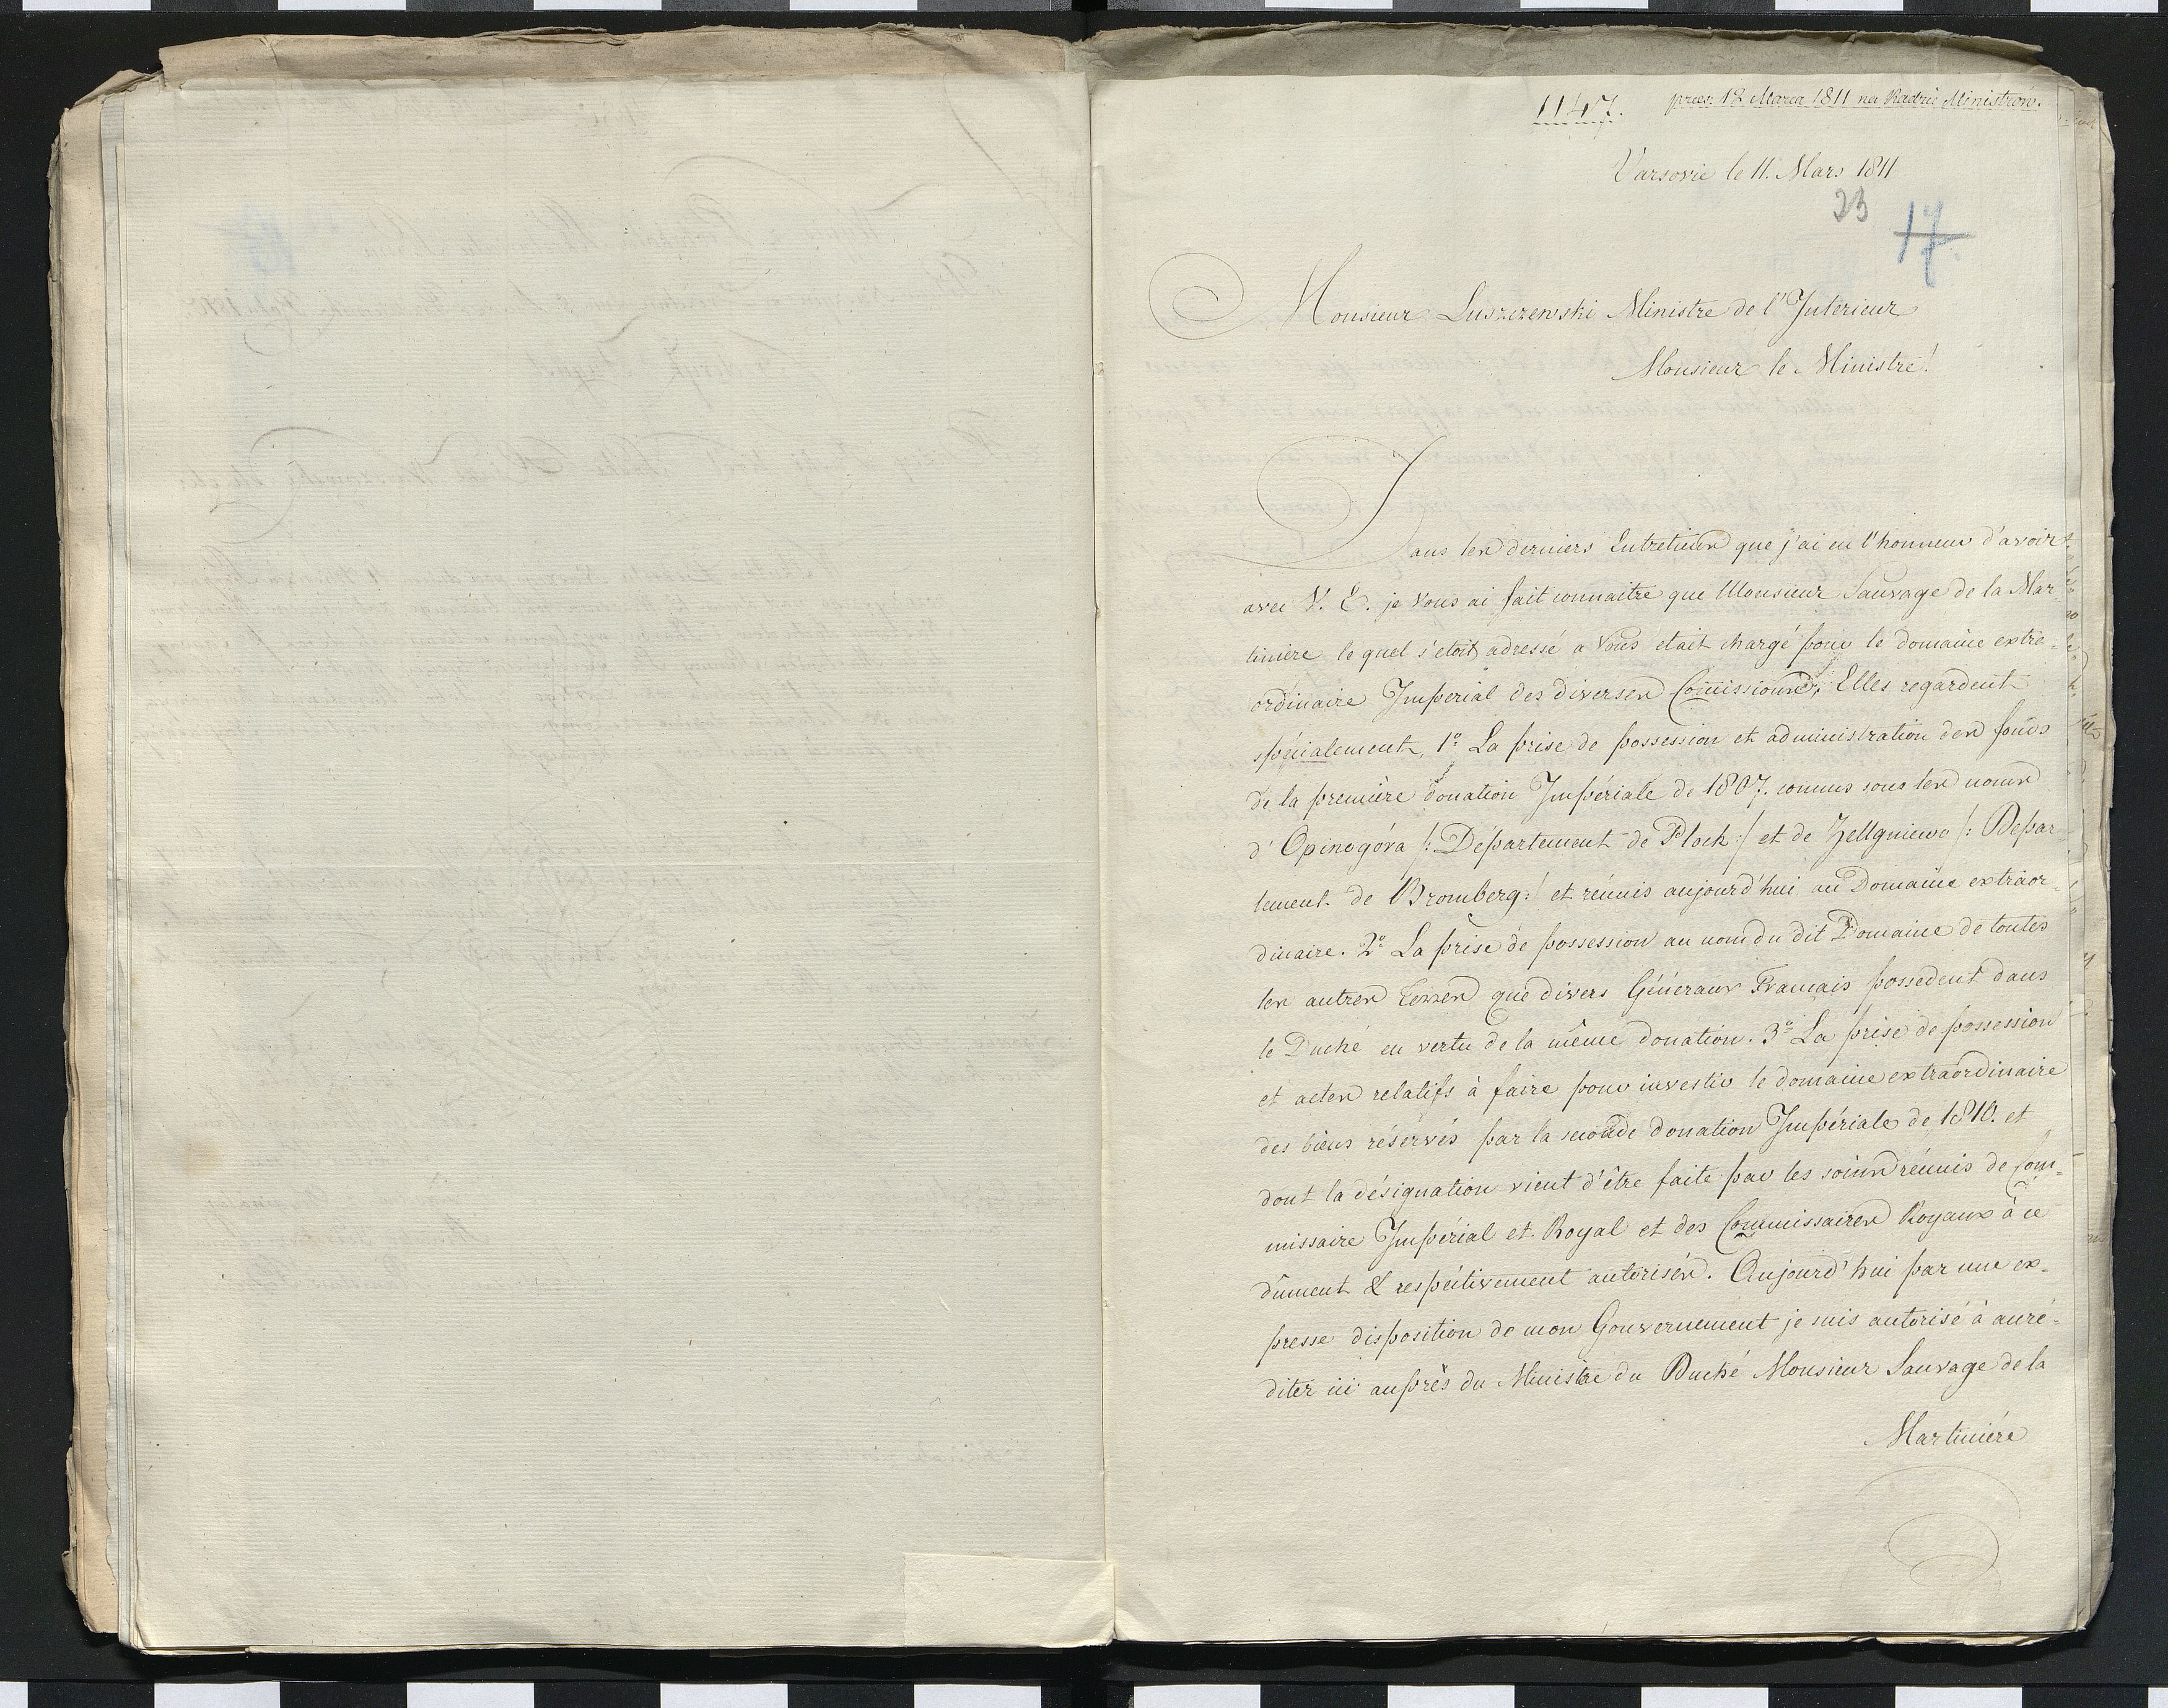 1147. praes: 12 Marca 1811 na Radzie Ministrów.
Varsovie le 11. Mars 1811
23
17.
Monsieur Luszczewski Ministre de l'Interieur
Monsieur le Ministre!
Dans les derniers Entretiens que j'ai eu l'honneur d'avoir
avec V. E. je Vous ai fait connaitre que Monsieur Sauvage de la Mar-
tinière le quel s'etoit adressé a Vous était chargé pour le domaine extra-
ordinaire Imperial des diverses Com̄issions; Elles regardent
spécialement, 1o La prise de possession et administration des fonds
de la première donation Impériale de 1807. connus sous les noms
d'Opinogóra /: Département de Plock :/ et de Zellgniewo /: Depar-
tement de Bromberg :/ et réunis aujourd'hui au Domaine extraor-
dinaire. 2o La prise de possession au nom du dit Domaine de toutes
les autres terres que divers Géneraux Francais possedent dans
le Duché en vertu de la même donation. 3o La prise de possession
et actes relatifs à faire pour investir le domaine extraordinaire
des biens réservés par la seconde donation Impériale de 1810. et
dont la désignation vient d'être faite par les soins réunis de Com-
missaire Impérial et Royal et des Commissaires Royaux à ce
dûment & respéctivement autorisés. Aujourd'hui par une ex-
presse disposition de mon Gouvernement je suis autorisé à accré-
diter ici auprès du Ministre du Duché Monsieur Sauvage de la
Martiniére